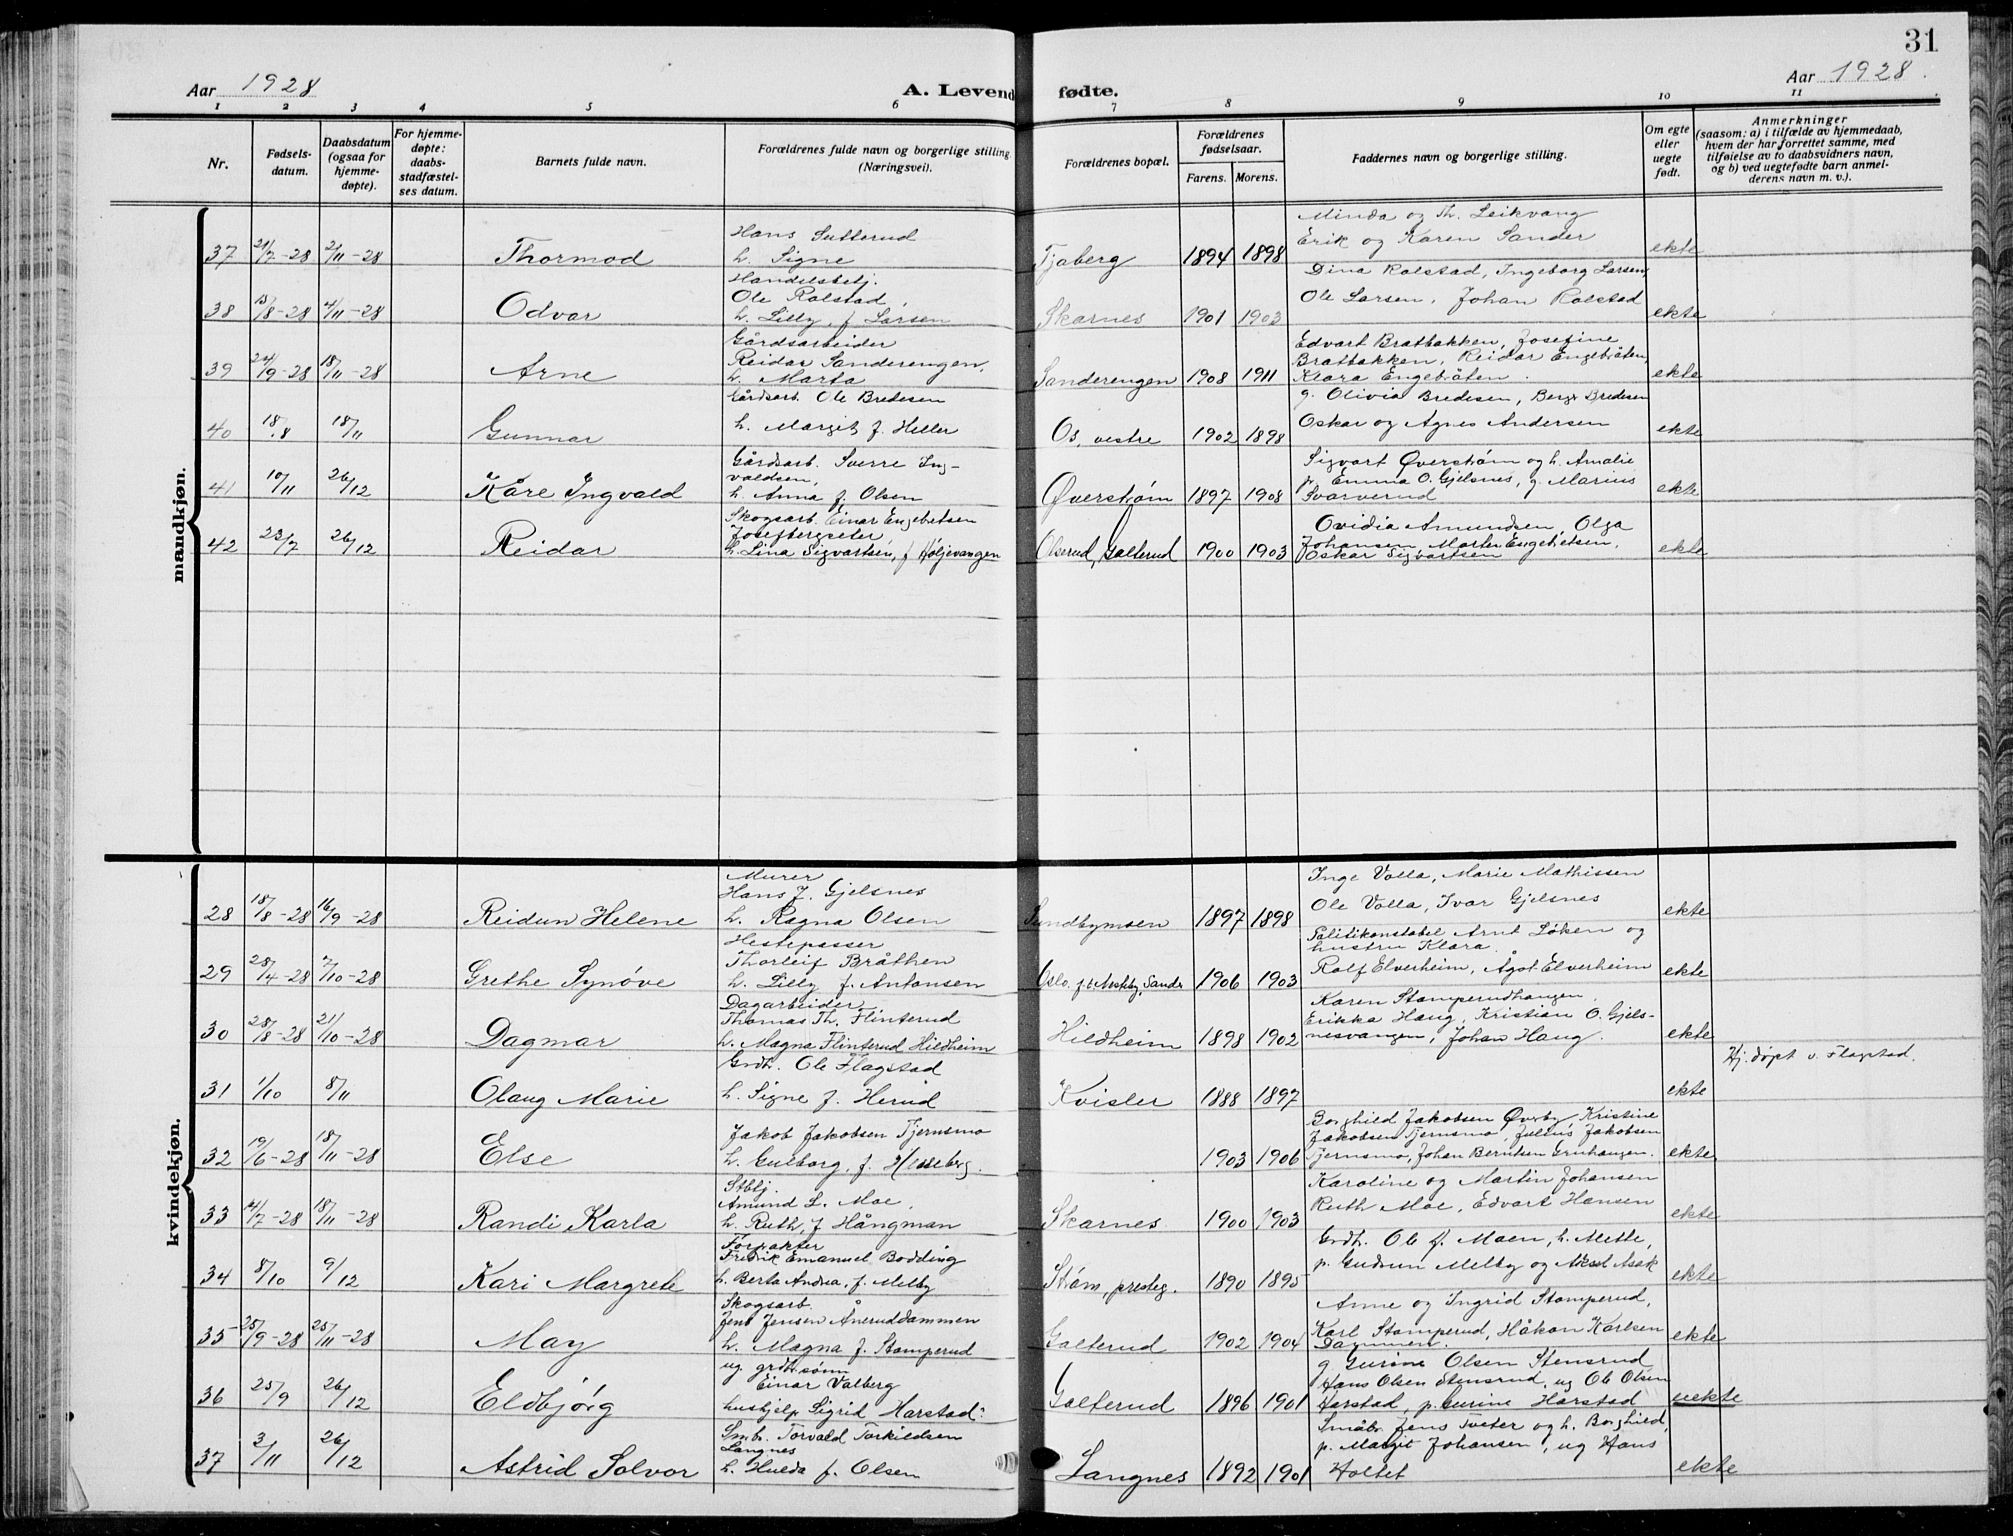 31
Aar 1928
A. Levende fødte.
Aar 1928.
1 2 3 4 5 6 7 8 9 10 11
Nr.
Fødsels-
datum.
Daabsdatum
(ogsaa for
hjemme-
døpte).
For hjemme-
døpte:
daabs-
stadfæstel-
ses datum.
Barnets fulde navn.
Forældrenes fulde navn og borgerlige stilling.
(Næringsvei).
Forældrenes bopæl.
Forældrenes
fødselsaar.
Farens. Morens.
Faddernes navn og borgerlige stilling.
Om egte
eller
uegte
født.
Anmerkninger
(saasom: a) i tilfælde av hjemmedaab,
hvem der har forrettet samme, med
tilføielse av to daabsvidners navn,
og b) ved uegtefødte barn anmel-
derens navn m. v.).
mandkjøn.
37 21/7-28 2/11-28 Thormod
Hans Sutterud
h. Signe
Tjaberg 1894 1898
Minda og Th. Leikvang
Erik og Karen Sander
ekte
38 15/8-28 4/11-28 Odvar
Handelsbetj.
Ole Rolstad,
h. Lilly, f. Larsen
Skarnes 1901 1903
Dina Rolstad, Ingeborg Larsen
Ole Larsen, Johan Rolstad
ekte
39 24/9-28 18/11-28 Arne
Gårdsarbeider
Reidar Sanderengen,
h. Marta
Sanderengen 1908 1911
Edvart Bratbakken, Josefine
Bratbakken, Reidar Engebråten,
Klara Engebråten.
ekte
40 18/8 18/11 Gunnar
Gårdsarb. Ole Bredesen
h. Margit f. Heller
Os, vestre 1902 1898
g. Olivia Bredesen, Berge Bredesen
Oskar og Agnes Andersen
ekte
41 10/11 26/12 Kåre Ingvald
Gårdsarb. Sverre Ing-
valdsen,
h. Anna f. Olsen
Øverstrøm 1897 1908
Sigvart Øverstrøm og h. Amalie
p. Emma O. Gjelsnes, g. Marius
Svarverud
ekte
42 23/7 26/12 Reidar
Skogsarb. Einar Engebretsen
Josefbergseter
h. Lina Sigvartsen, f Høljevangen
Olserud, Galterud 1900 1903
Ovidia Amundsen, Olga
Johansen, Martin Engebretsen,
Oskar Sigvartsen
ekte
kvindekjøn.
28 18/8-28 16/9-28 Reidun Helene
Murer
Hans J. Gjelsnes
h. Ragna Olsen
Sundbymoen 1897 1898
Inge Volla, Marie Mathissen
Ole Volla, Ivar Gjelsnes
ekte
29 28/4-28 7/10-28 Grethe Synøve
Hestepasser
Thorleif Bråthen
h. Lilly f. Antonsen
Oslo. p.t. Meskby, Sander 1906 1903
Politikonstabel Arnt Løken og
hustru Klara.
Rolf Elverheim, Ågot Elverheim
ekte
30 28/8-28 21/10-28 Dagmar
Dagarbeider
Thomas Th. Flinterud
h. Magna Flinterud Hildheim
Hildheim 1898 1902
Karen Stamperudhaugen.
Erikka Haug, Kristian O. Gjels-
nesvangen, Johan Haug.
ekte
31 1/10 8/11 Olaug Marie
Grdb. Ole Flagstad
h. Signe f. Herud
Kvisler 1888 1897
ekte
Hj. døpt v. Flagstad.
32 19/6-28 18/11-28 Else
Jakob Jakobsen Tjernsmo
h. Gulborg, f. Hesseberg.
1903 1906
Borghild Jakobsen Øverby, Kristine
Jakobsen Tjernsmo, Julius Jakobsen
Tjernsmo, Johan Berntsen Grinhaugen.
ekte
33 14/7-28 18/11-28 Randi Karla
Stblj.
Amund L. Moe,
h. Ruth, f Hångman
Skarnes. 1900 1903
Karoline og Martin Johansen
Ruth Moe, Edvart Hansen
ekte
34 8/10 9/12 Kari Margrete
Forpakter
Fredrik Emanuel Bodding
h. Berta Andrea, f. Melby
Strøm, presteg. 1890 1895
Grdb. Ole f. Moen, h. Mette,
p. Gudrun Melby og Aksel Asak
ekte
35 25/9-28 25/11-28 May
Skogsarb.
Jens Jensen Ånerud Dammen
h. Magna f. Stamperud
Galterud 1902 1904
Anne og Ingrid Stamperud,
Karl Stamperud, Håkon Karlsen
Dammen.
ekte
36 25/9 26/12 Eldbjørg
ug. grdb.sønn
Einar Valberg
hushjelp Sigrid Harstad:
Galterud 1896 1901
g. Gurine Olsen Stensrud
Hans Olsen Stensrud, ug Ole Olsen
Harstad, p. Gurine Harstad
uekte
37 3/11 26/12 Astrid Solvor
Smb. Torvald Torkildsen
Langnes
h. Hulda f. Olsen
Langnes 1892 1901
Småbr. Jens Tveter og h. Borghild,
p. Margit Johansen, ug Hans
Holtet
ekte